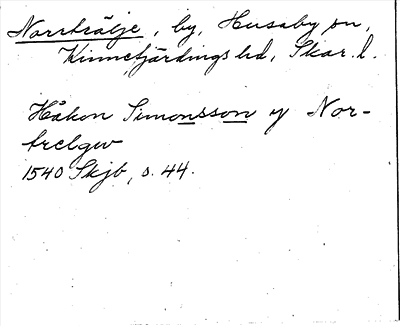 Norrträlje, by, Husaby sn,
Kinnefjärdings hd, Skar. l.
Håkon Simonsson y Nor-
trelgw
1540 Skjb, s. 44.